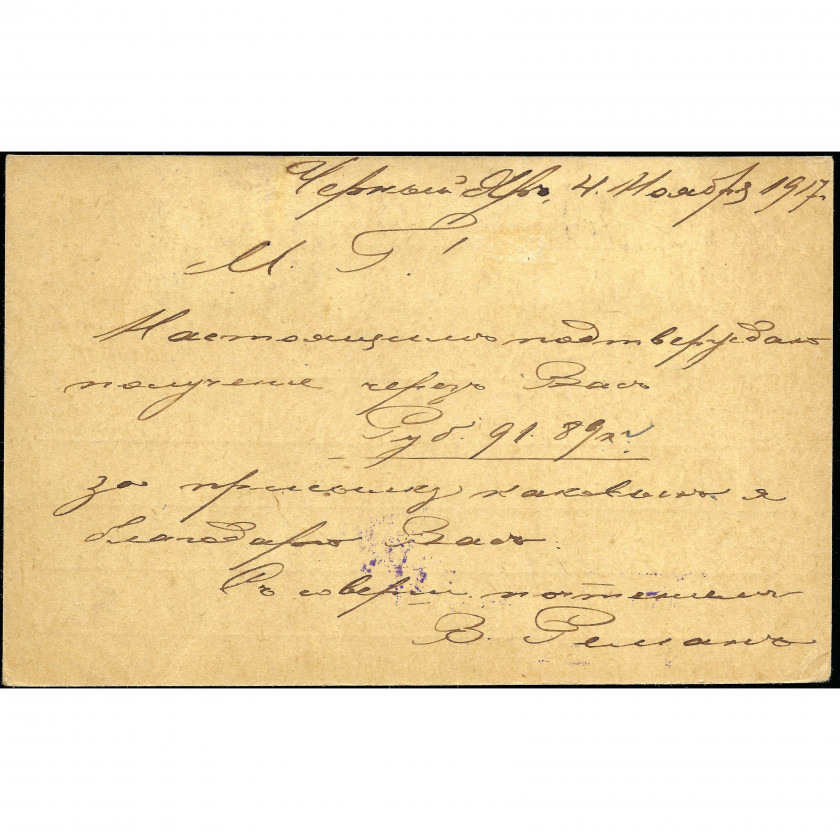 Черный Яръ, 4. Ноября 1917.
М. Г.!
Настоящимъ подтверждаю
полученіе черезъ Васъ
Руб. 91. 89 к.
за присылку каковыхъ я
благодарю Васъ.
Съ соверш. почтеніемъ
В. Реманъ